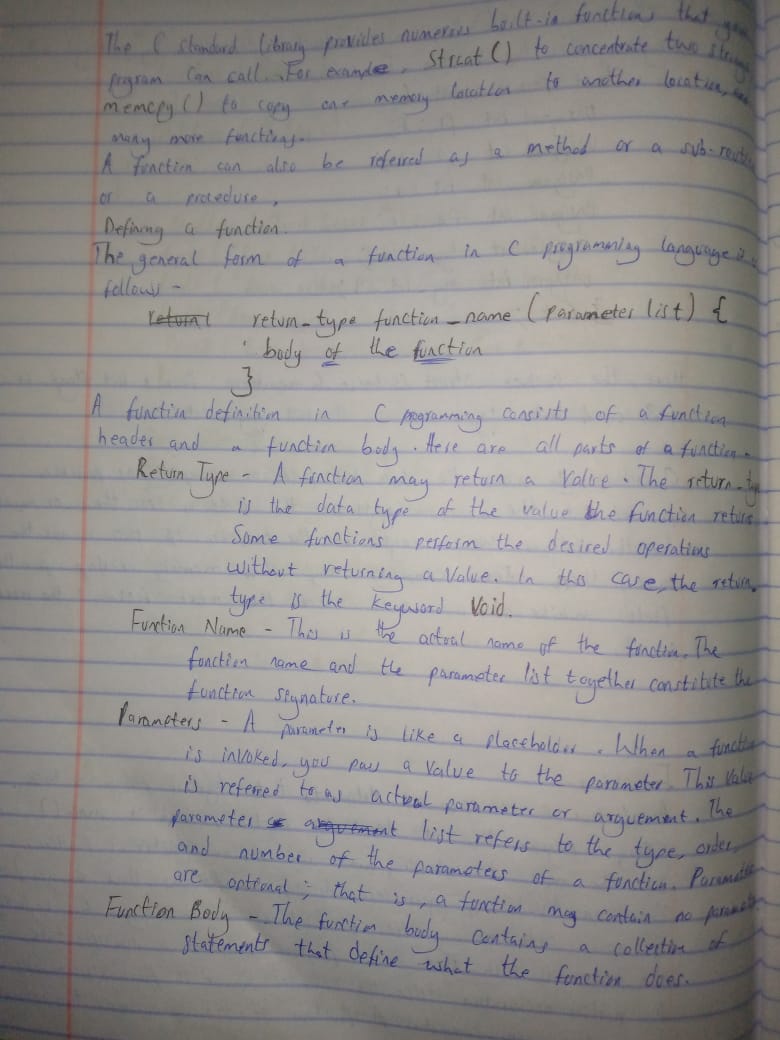 The C standard library provides numerous built-in functions that your
program can call. For example, Strcat () to concentrate two strings
memcpy () to copy one memory location to another location, and
many more functions.
A function can also be refered as a method or a sub-routine
or a procedure,
Defining a function.
The general form of a function in C programming language is
follows -
return_type function_name (parameter list) {
body of the function
}
A function definition in C programming consists of a function
header and a function body. Here are all parts of a function.
Return Type - A function may return a Value. The return_type
is the data type of the value the function returns
Some functions perform the desired operations
without returning a Value. In this case, the return_
type is the keyword Void.
Function Name - This is the actual name of the function. The
function name and the parameter list together constitute the
function signature.
Parameters - A parameter is like a placeholder. When a function
is invoked, you pass a Value to the parameter. This Value
is referred to as actual parameter or arguement. The
parameter list refers to the type, order,
and number of the parameters of a function. Parameters
are optional; that is, a function may contain no parameters
Function Body - The function body contains a collection of
Statements that define what the function does.